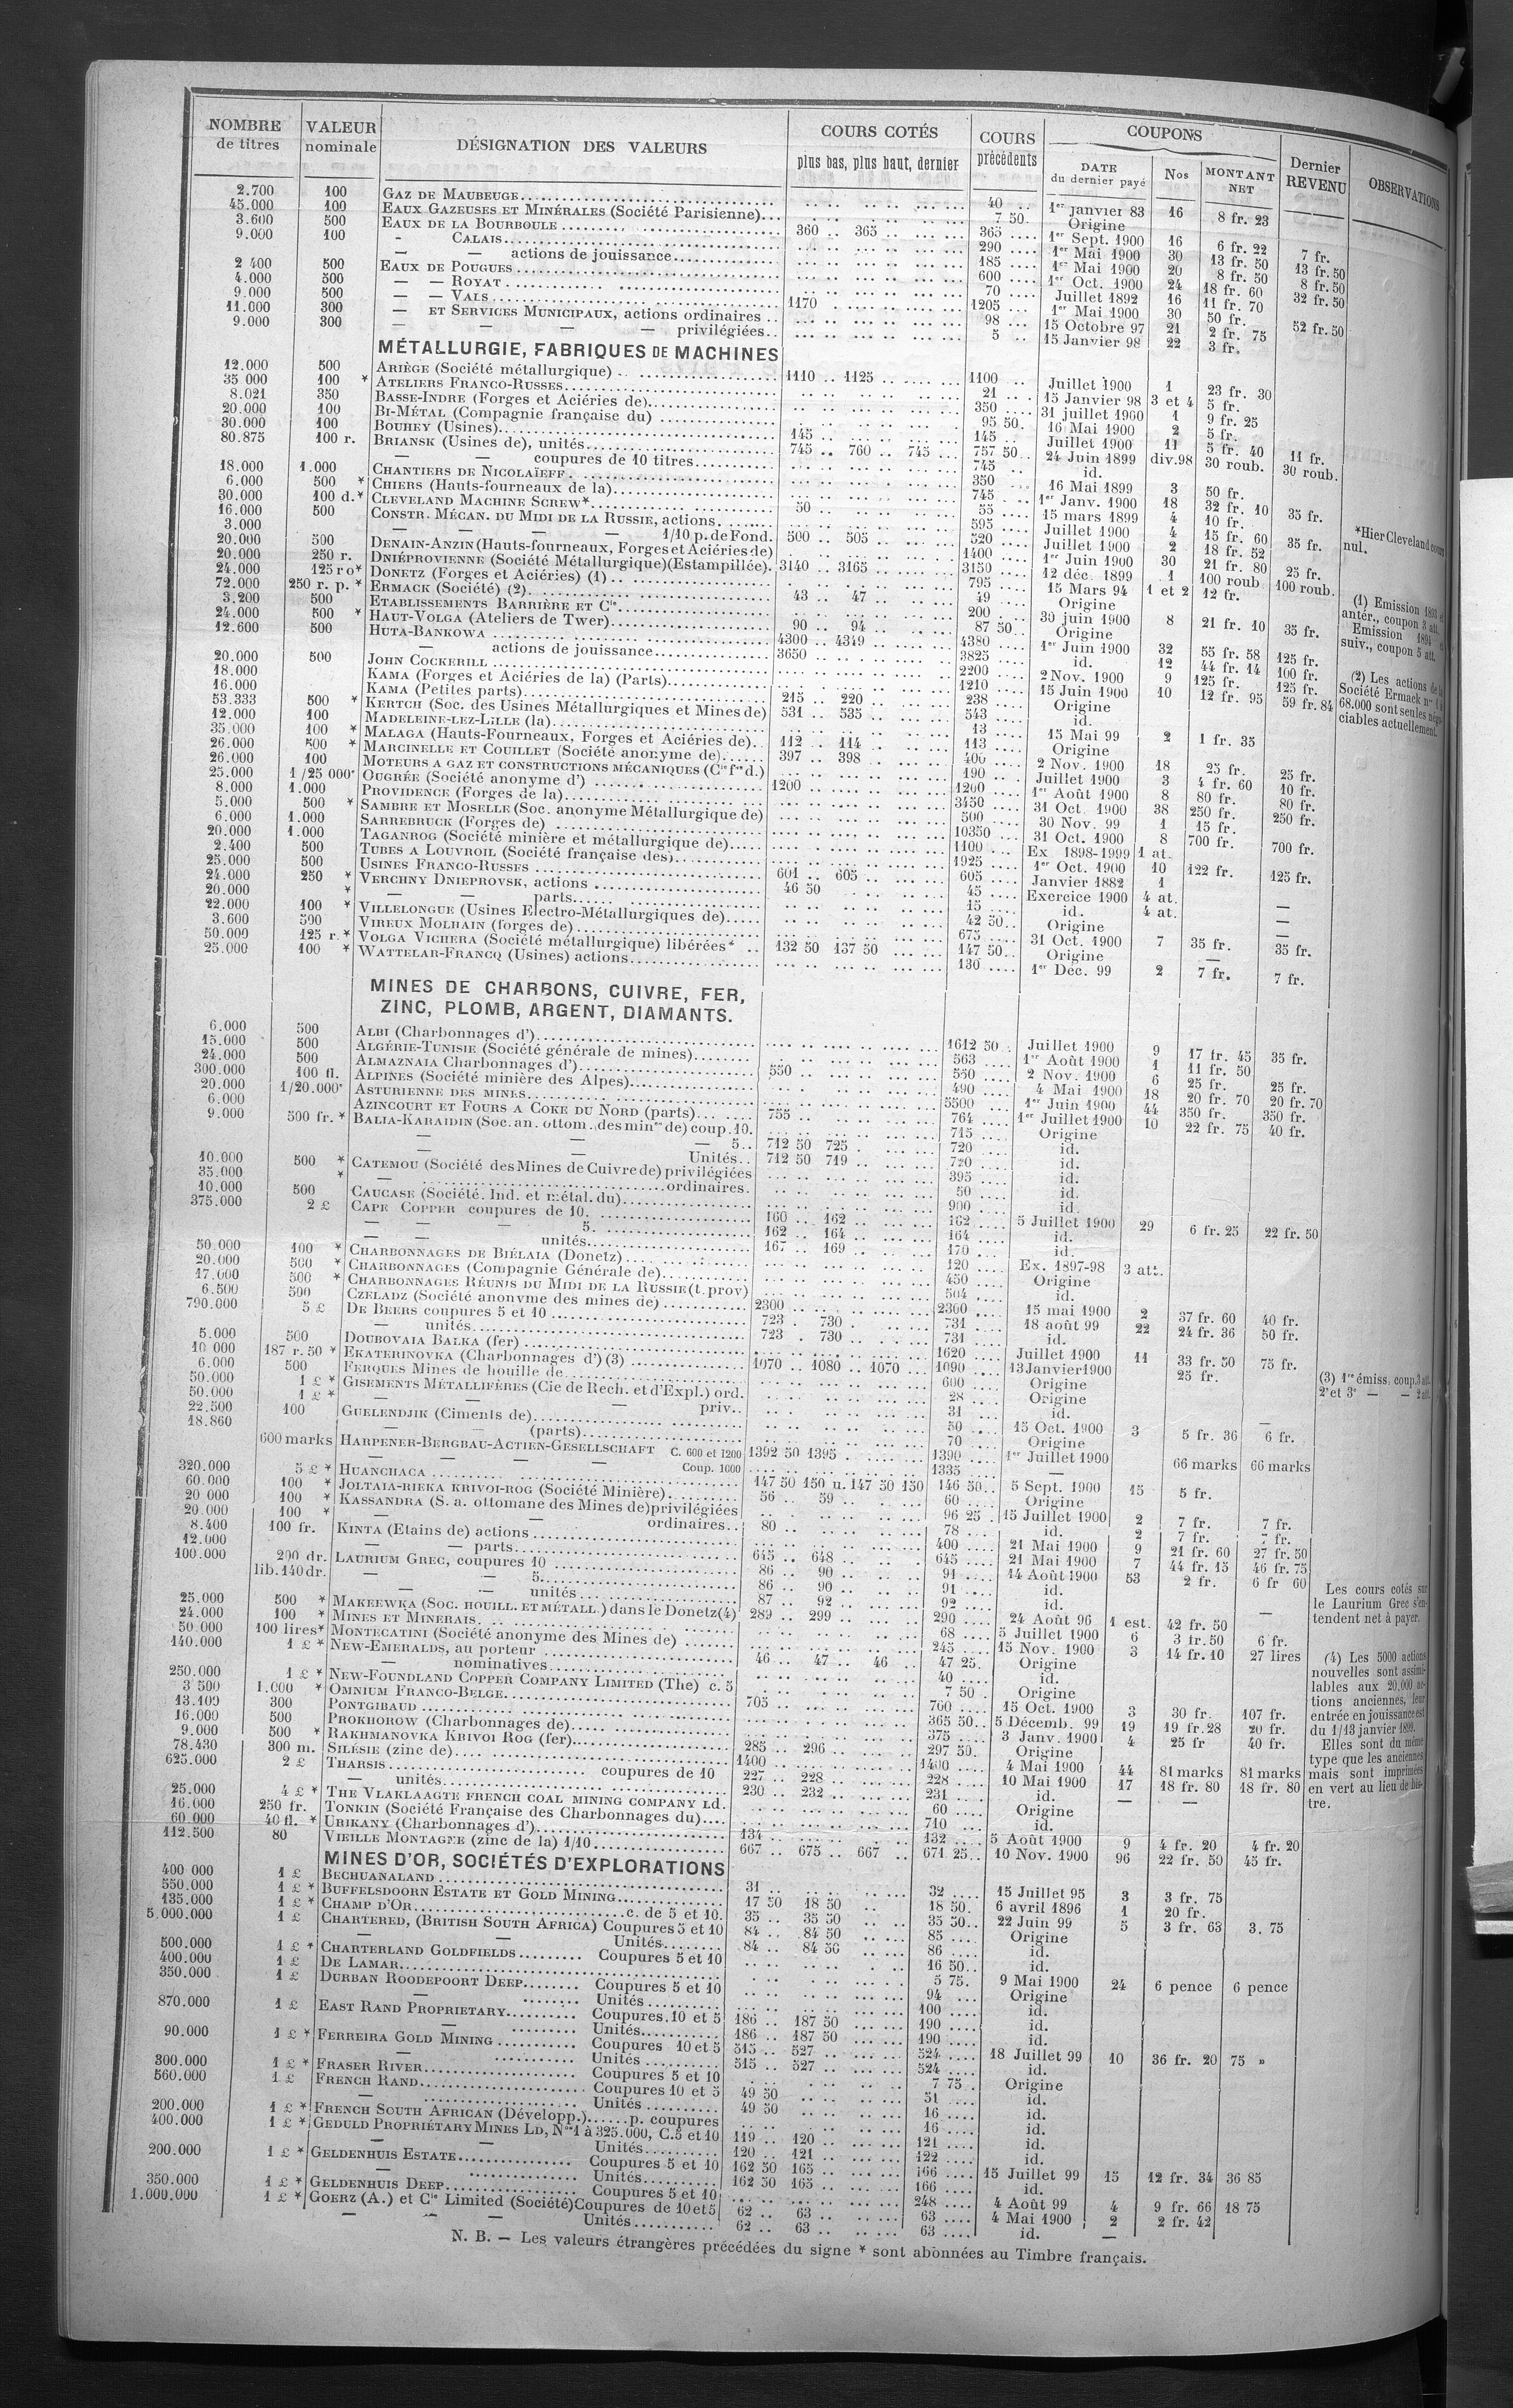 NOMBRE de titres | VALEUR nominale | DÉSIGNATION DES VALEURS | COURS COTÉS plus bas, plus haut, dernier | COURS précédents | COUPONS DATE du dernier payé | Nos | MONTANT NET | Dernier REVENU | OBSERVATIONS
2.700 100 GAZ DE MAUBEUGE 40 1er janvier 83 16 8 fr. 23
45.000 100 EAUX GAZEUSES ET MINÉRALES (Société Parisienne) 7 50 Origine
3.600 500 EAUX DE LA BOURBOULE 360 365 365 1er Sept. 1900 16 6 fr. 22 7 fr.
9.000 100 - CALAIS 290 1er Mai 1900 30 13 fr. 50 13 fr. 50
— — actions de jouissance 185 1er Mai 1900 20 8 fr. 50 8 fr. 50
2 400 500 EAUX DE POUGUES 600 1er Oct. 1900 24 18 fr. 60 32 fr. 50
4.000 500 — — ROYAT 70 Juillet 1892 16 11 fr. 70
9.000 500 — — VALS 1170 1205 1er Mai 1900 30 50 fr. 52 fr. 50
11.000 300 — ET SERVICES MUNICIPAUX, actions ordinaires 98 15 Octobre 97 21 2 fr. 75
9.000 300 — — — — privilégiées 5 15 Janvier 98 22 3 fr.
MÉTALLURGIE, FABRIQUES DE MACHINES
12.000 500 ARIÈGE (Société métallurgique) 1110 1125 1100 Juillet 1900 1 23 fr. 30
35 000 100 * ATELIERS FRANCO-RUSSES 21 15 Janvier 98 3 et 4 5 fr.
8.021 350 BASSE-INDRE (Forges et Aciéries de) 350 31 juillet 1900 1 9 fr. 25
20.000 100 BI-MÉTAL (Compagnie française du) 95 50 16 Mai 1900 2 5 fr.
30.000 100 BOUHEY (Usines) 145 145 Juillet 1900 11 5 fr. 40 11 fr.
80.875 100 r. BRIANSK (Usines de), unités 745 760 745 757 50 24 Juin 1899 div.98 30 roub. 30 roub.
— — coupures de 10 titres 745 id.
18.000 1.000 CHANTIERS DE NICOLAÏEFF 350 16 Mai 1899 3 50 fr.
6.000 500 * CHIERS (Hauts-fourneaux de la) 745 1er Janv. 1900 18 32 fr. 10 35 fr.
30.000 100 d.* CLEVELAND MACHINE SCREW* 50 55 15 mars 1899 4 10 fr.
16.000 500 CONSTR. MÉCAN. DU MIDI DE LA RUSSIE, actions 595 Juillet 1900 4 15 fr. 60 35 fr.
3.000 — — — — 1/10 p. de Fond. 500 505 520 Juillet 1900 2 18 fr. 52
20.000 500 DENAIN-ANZIN (Hauts-fourneaux, Forges et Aciéries de) 1400 1er Juin 1900 30 21 fr. 80 25 fr.
20.000 250 r. DNIÉPROVIENNE (Société Métallurgique) (Estampillée) 3140 3165 3150 12 déc. 1899 1 100 roub 100 roub.
24.000 125 ro* DONETZ (Forges et Aciéries) (1) 795 15 Mars 94 1 et 2 12 fr.
72.000 250 r. p. * ERMACK (Société) (2) 43 47 49 Origine
3.200 500 ETABLISSEMENTS BARRIÈRE ET Cie 200 30 juin 1900 8 21 fr. 10 35 fr.
24.000 500 * HAUT-VOLGA (Ateliers de Twer) 90 94 87 50 Origine
12.600 500 HUTA-BANKOWA 4300 4349 4380 1er Juin 1900 32 55 fr. 58 125 fr.
— actions de jouissance 3650 3825 id. 12 44 fr. 14 100 fr.
20.000 500 JOHN COCKERILL 2200 2 Nov. 1900 9 125 fr. 125 fr.
18.000 KAMA (Forges et Aciéries de la) (Parts) 1210 15 Juin 1900 10 12 fr. 95 59 fr. 84
16.000 KAMA (Petites parts) 215 220 238 Origine
53.333 500 * KERTCH (Soc. des Usines Métallurgiques et Mines de) 531 535 543 id.
12.000 100 MADELEINE-LEZ-LILLE (la) 13 15 Mai 99 2 1 fr. 35
35.000 100 * MALAGA (Hauts-Fourneaux, Forges et Aciéries de) 112 114 113 Origine
26.000 500 * MARCINELLE ET COUILLET (Société anonyme de) 397 398 400 2 Nov. 1900 18 25 fr. 25 fr.
26.000 100 MOTEURS A GAZ ET CONSTRUCTIONS MÉCANIQUES (Cie fse d.) 190 Juillet 1900 3 4 fr. 60 10 fr.
25.000 1/25 000e OUGRÉE (Société anonyme d') 1200 1200 1er Août 1900 8 80 fr. 80 fr.
8.000 1.000 PROVIDENCE (Forges de la) 3450 31 Oct. 1900 38 250 fr. 250 fr.
5.000 500 * SAMBRE ET MOSELLE (Soc. anonyme Métallurgique de) 500 30 Nov. 99 1 15 fr.
6.000 1.000 SARREBRUCK (Forges de) 10350 31 Oct. 1900 8 700 fr. 700 fr.
20.000 1.000 TAGANROG (Société minière et métallurgique de) 1100 Ex 1898-1999 1 at.
2.400 500 TUBES A LOUVROIL (Société française des) 1925 1er Oct. 1900 10 122 fr. 125 fr.
25.000 500 USINES FRANCO-RUSSES 601 605 605 Janvier 1882 1
24.000 250 * VERCHNY DNIEPROVSK, actions 46 50 45 Exercice 1900 4 at. —
20.000 * — — parts 15 id. 4 at. —
22.000 100 * VILLELONGUE (Usines Electro-Métallurgiques de) 42 50 Origine —
3.600 500 VIREUX MOLHAIN (forges de) 675 31 Oct. 1900 7 35 fr. 35 fr.
50.000 125 r.* VOLGA VICHERA (Société métallurgique) libérées* 132 50 137 50 147 50 Origine —
25.000 100 * WATTELAR-FRANCQ (Usines) actions 130 1er Déc. 99 2 7 fr. 7 fr.
MINES DE CHARBONS, CUIVRE, FER,
ZINC, PLOMB, ARGENT, DIAMANTS.
6.000 500 ALBI (Charbonnages d') 1612 50 Juillet 1900 9 17 fr. 45 35 fr.
15.000 500 ALGÉRIE-TUNISIE (Société générale de mines) 563 1er Août 1900 1 11 fr. 50
24.000 500 ALMAZNAIA Charbonnages d') 550 550 2 Nov. 1900 6 25 fr. 25 fr.
300.000 100 fl. ALPINES (Société minière des Alpes) 490 4 Mai 1900 18 20 fr. 70 20 fr. 70
20.000 1/20.000e ASTURIENNE DES MINES 5500 1er Juin 1900 44 350 fr. 350 fr.
6.000 AZINCOURT ET FOURS A COKE DU NORD (parts) 755 764 1er Juillet 1900 10 22 fr. 75 40 fr.
9.000 500 fr. * BALIA-KARAIDIN (Soc. an. ottom. des mines de) coup. 10. 715 Origine
— — — 5 712 50 725 720 id.
— — Unités 712 50 719 720 id.
10.000 500 * CATEMOU (Société des Mines de Cuivre de) privilégiées 395 id.
35.000 * — ordinaires. 50 id.
10.000 500 CAUCASE (Société. Ind. et métal. du) 900 id.
375.000 2 £ CAPE COPPER coupures de 10. 160 162 162 5 Juillet 1900 29 6 fr. 25 22 fr. 50
— — — 5. 162 164 164 id.
— — unités 167 169 170 id.
50.000 100 * CHARBONNAGES DE BIÉLAIA (Donetz) 120 Ex. 1897-98 3 att.
20.000 500 * CHARBONNAGES (Compagnie Générale de) 450 Origine
17.000 500 * CHARBONNAGES RÉUNIS DU MIDI DE LA RUSSIE (t. prov) 504 id.
6.500 500 CZELADZ (Société anonyme des mines de) 2300 2300 15 mai 1900 2 37 fr. 60 40 fr.
790.000 5 £ DE BEERS coupures 5 et 10 723 730 731 18 août 99 22 24 fr. 36 50 fr.
— unités 723 730 731 id.
5.000 500 DOUBOVAIA BALKA (fer) 1620 Juillet 1900 11 33 fr. 50 75 fr.
10 000 187 r. 50 * EKATERINOVKA (Charbonnages d') (3) 1070 1080 1070 1090 13 Janvier 1900 25 fr.
6.000 500 FERQUES Mines de houille de 600 Origine
50.000 1 £ * GISEMENTS MÉTALLIFÈRES (Cie de Rech. et d'Expl.) ord. 28 Origine
50.000 1 £ * — — priv. 31 id.
22.500 100 GUELENDJIK (Ciments de) 50 15 Oct. 1900 3 5 fr. 36 6 fr.
18.860 — — (parts) 70 Origine
600 marks HARPENER-BERGBAU-ACTIEN-GESELLSCHAFT C. 600 et 1200 1392 50 1395 1390 1er Juillet 1900 66 marks 66 marks
— — — — Coup. 1000 1335 —
320.000 5 £ * HUANCHACA 147 50 150 u. 147 50 150 146 50 5 Sept. 1900 15 5 fr.
60.000 100 * JOLTAIA-RIEKA KRIVOI-ROG (Société Minière) 56 59 60 Origine
20 000 100 * KASSANDRA (S. a. ottomane des Mines de) privilégiées 96 25 15 Juillet 1900 2 7 fr. 7 fr.
20.000 100 * — — ordinaires 80 78 id. 2 7 fr. 7 fr.
8.400 100 fr. KINTA (Etains de) actions 400 21 Mai 1900 9 21 fr. 60 27 fr. 50
12.000 — — parts 645 648 645 21 Mai 1900 7 44 fr. 15 46 fr. 75
100.000 200 dr. LAURIUM GREC, coupures 10 86 90 91 14 Août 1900 53 2 fr. 6 fr 60
lib. 140 dr. — — 5. 86 90 91 id.
— — unités 87 92 92 id.
25.000 500 * MAKEEWKA (SOC. HOUILL. ET MÉTALL.) dans le Donetz (4) 289 299 290 24 Août 96 1 est. 42 fr. 50 —
24.000 100 * MINES ET MINERAIS 68 5 Juillet 1900 6 3 fr. 50 6 fr.
50.000 100 lires* MONTECATINI (Société anonyme des Mines de) 245 15 Nov. 1900 3 14 fr. 10 27 lires
140.000 1 £ * NEW-EMERALDS, au porteur 46 47 46 47 25 Origine
— nominatives 40 id.
250.000 1 £ * NEW-FOUNDLAND COPPER COMPANY LIMITED (The) c. 5 7 50 Origine
3 500 1.000 * OMNIUM FRANCO-BELGE 705 700 15 Oct. 1900 3 30 fr. 107 fr.
13.109 300 PONTGIBAUD 365 50 5 Décemb. 99 19 19 fr. 28 20 fr.
16.000 500 PROKHOROW (Charbonnages de) 375 3 Janv. 1900 4 25 fr 40 fr.
9.000 500 * RAKHMANOVKA KRIVOI ROG (fer) 285 296 297 50 Origine
78.430 300 m. SILÉSIE (zinc de) 1400 1400 4 Mai 1900 44 81 marks 81 marks
625.000 2 £ THARSIS coupures de 10 227 228 228 10 Mai 1900 17 18 fr. 80 18 fr. 80
— unités 230 232 231 id. — —
25.000 4 £ * THE VLAKLAAGTE FRENCH COAL MINING COMPANY LD. 60 Origine
16.000 250 fr. TONKIN (Société Française des Charbonnages du) 710 id.
60.000 40 fl. * URIKANY (Charbonnages d') 134 132 5 Août 1900 9 4 fr. 20 4 fr. 20
112.500 80 VIEILLE MONTAGNE (zinc de la) 1/10 667 675 667 671 25 10 Nov. 1900 96 22 fr. 50 45 fr.
MINES D'OR, SOCIÉTÉS D'EXPLORATIONS
400 000 1 £ BECHUANALAND 31 32 15 Juillet 95 3 3 fr. 75
550.000 1 £ * BUFFELSDOORN ESTATE ET GOLD MINING 17 50 18 50 18 50 6 avril 1896 1 20 fr.
135.000 1 £ * CHAMP D'OR c. de 5 et 10. 35 35 50 35 50 22 Juin 99 5 3 fr. 63 3. 75
5.000.000 1 £ CHARTERED, (BRITISH SOUTH AFRICA) Coupures 5 et 10 84 84 50 85 Origine
— — Unités 84 84 50 86 id.
500.000 1 £ * CHARTERLAND GOLDFIELDS Coupures 5 et 10 16 50 id.
400.000 1 £ DE LAMAR 5 75 9 Mai 1900 24 6 pence 6 pence
350.000 1 £ DURBAN ROODEPOORT DEEP Coupures 5 et 10 94 Origine
— Unités 100 id.
870.000 1 £ EAST RAND PROPRIETARY Coupures 10 et 5 186 187 50 190 id.
— Unités 186 187 50 190 id.
90.000 1 £ * FERREIRA GOLD MINING Coupures 10 et 5 515 527 524 18 Juillet 99 10 36 fr. 20 75 »
— Unités 515 527 524 id.
300.000 1 £ * FRASER RIVER Coupures 5 et 10 7 75 Origine
560.000 1 £ FRENCH RAND Coupures 10 et 5 49 50 51 id.
— Unités 49 50 16 id.
200.000 1 £ * FRENCH SOUTH AFRICAN (Développ.) p. coupures 16 id.
400.000 1 £ * GEDULD PROPRIÉTARY MINES LD, Nos 1 à 325.000, C. 5 et 10 119 120 121 id.
— — Unités 120 121 122 id.
200.000 1 £ * GELDENHUIS ESTATE Coupures 5 et 10 162 50 165 166 15 Juillet 99 15 12 fr. 34 36 85
— Unités 162 50 165 166 id.
350.000 1 £ * GELDENHUIS DEEP Coupures 5 et 10 248 4 Août 99 4 9 fr. 66 18 75
1.000.000 1 £ * GOERZ (A.) et Cie Limited (Société) Coupures de 10 et 5 62 63 63 4 Mai 1900 2 2 fr. 42
— — — Unités 62 63 63 id. —
*Hier Cleveland
nul.
(1) Emission
antér., coupon 3 att.
Emission 1894
suiv., coupon 5 att.
(2) Les actions de la
Société Ermack
68.000 sont seules
ciables actuellement.
(3) 1re émiss. coup. 3 att.
2e et 3e — — 2 att.
Les cours cotés sur
le Laurium Grec s'en-
tendent net à payer.
(4) Les 5000 actions
nouvelles sont assimi-
lables aux 20.000 ac-
tions anciennes, leur
entrée en jouissance est
du 1/13 janvier 1899.
Elles sont du même
type que les anciennes
mais sont imprimées
en vert au lieu de bis-
tre.
N. B. — Les valeurs étrangères précédées du signe * sont abonnées au Timbre français.